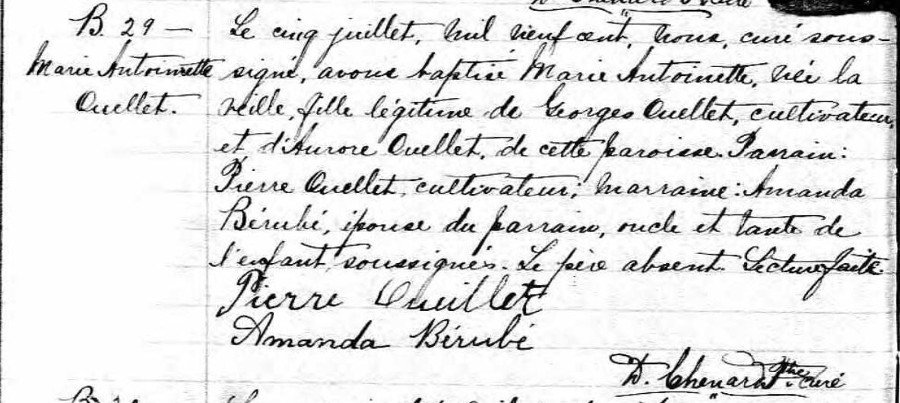 B. 29 —
Marie Antoinette
Ouellet.
Le cinq juillet, mil neuf cent, nous, curé sous-
signé, avons baptisé Marie Antoinette, née la
veille, fille légitime de Georges Ouellet, cultivateur,
et d'Aurore Ouellet, de cette paroisse. Parrain:
Pierre Ouellet, cultivateur; marraine: Amanda
Bérubé, épouse du parrain, oncle et tante de
l'enfant, soussignés. Le père absent. Lecture faite
Pierre Ouillet
Amanda Bérubé
D. Chenard Ptre. curé